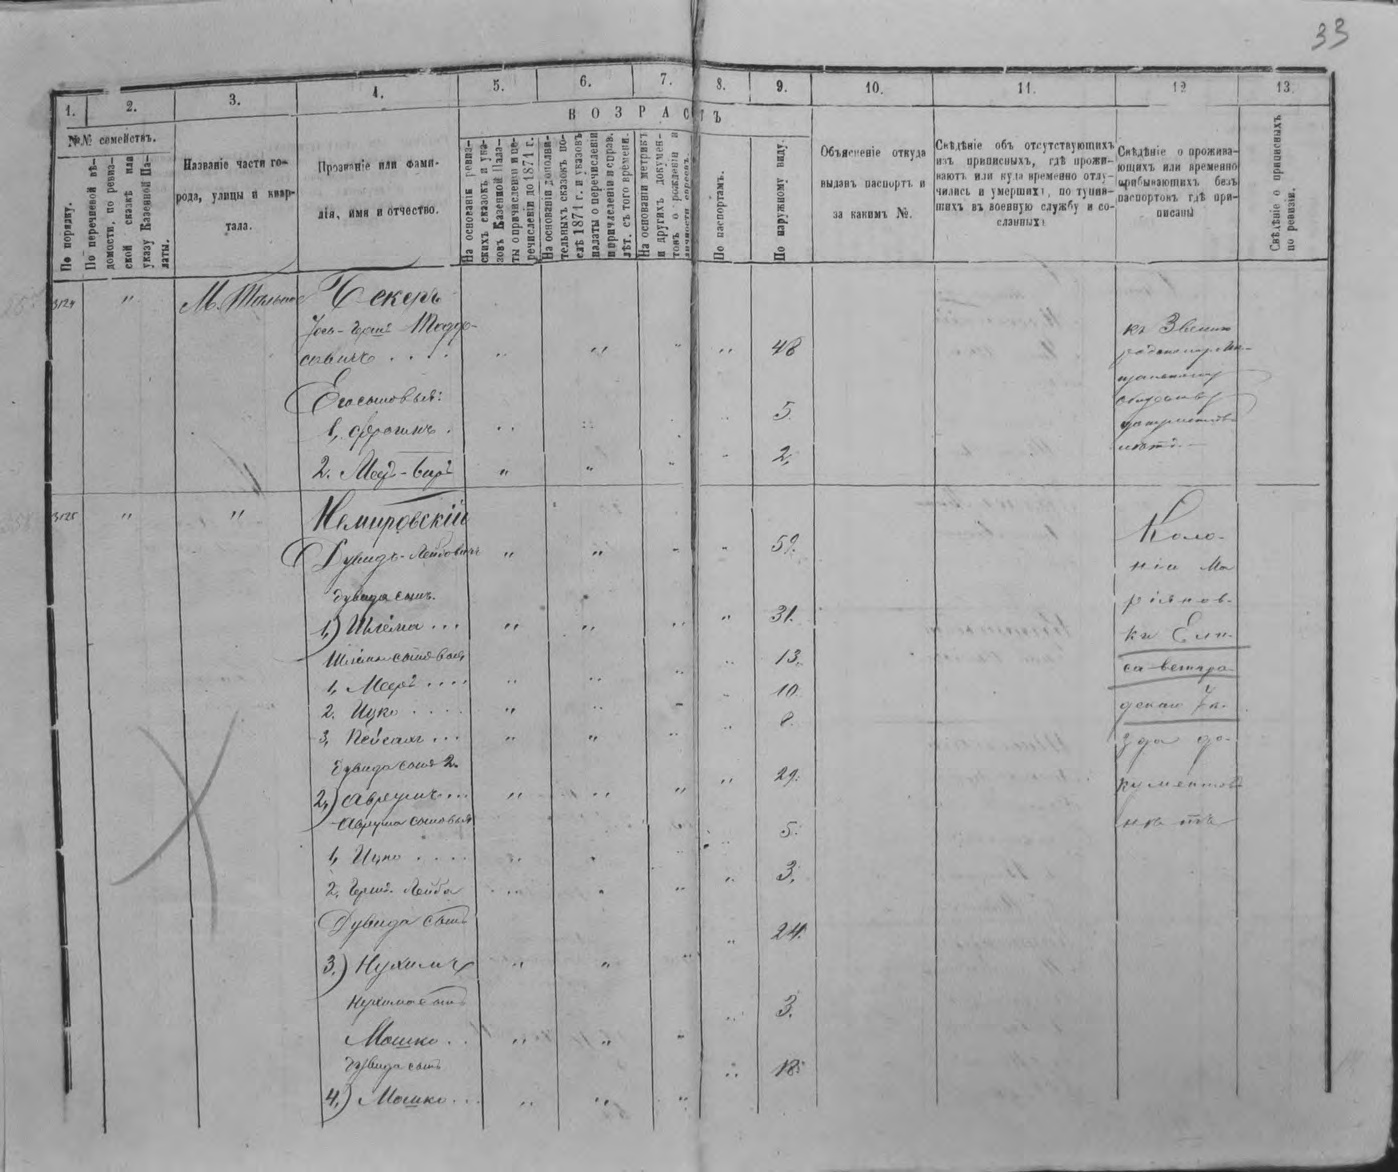 33
1.
2.
3.
4.
5.
6.
7.
8.
9.
10.
11.
12
13.
ВОЗРАСТЪ
№№ семействъ.
По порядку.
По перечневой вѣ-
домости, по ревиз-
ской сказкѣ или
указу Казенной Па-
латы.
Названіе части го-
рода, улицы и квар-
тала.
Прозваніе или фами-
лія, имя и отчество.
На основаніи ревиз-
скихъ сказокъ и ука-
зовъ Казенной Пала-
ты о причисленіи и пе-
речисленіи до 1871 г.
На основаніи дополни-
тельныхъ сказокъ по-
слѣ 1871 г. и указовъ
палаты о перечисленіи
и причисленіи и справ.
лѣт. съ того времени.
На основаніи метрикъ
и другихъ докумен-
товъ о рожденіи и
личности евреевъ.
По паспортамъ.
По наружному виду.
Объясненіе откуда
выданъ паспортъ и
за какимъ №.
Свѣдѣніе объ отсутствующихъ
изъ приписныхъ, гдѣ прожи-
ваютъ или куда временно отлу-
чились и умершихъ, по тупив-
шихъ въ военную службу и со-
сланныхъ
Свѣдѣніе о прожива-
ющихъ или временно
прибывающихъ безъ
паспортовъ гдѣ при-
писаны
Свѣдѣніе о приписныхъ
по ревизіи.
3124 " М. Тальное Чекеръ
Іось-Герш Тодро-
совичъ . . . . " " " " 48
Его сыновья:
1, Фроимъ . 5
2. Меер-Бер " " 2
къ Звени
документовъ
нѣтъ
3125 " " Немировскій
Дувидъ-Лейбовичъ " " " " 59.
Дувида сынъ.
1) Шлема . . . " " " " 31.
Шлемы сыновья
1, Меер . . . . 13.
2. Ицко . . . . " 10
3, Пейсахъ . . . " " 8.
Дувида сынъ 2.
2,) Аврумъ . . . " " " " 29.
Аврума сыновья
1, Ицко . . . . 5.
2. Герш. Лейба 3.
Дувида сынъ
3.) Нухимъ " " " 24.
Нухима сынъ
Мошко . . " " " 3.
Дувида сынъ
4.) Мошко . . . " " " 18.
Коло-
ніи Ма
ріянов-
ки Ели-
саветгра
дскаго Уѣ-
зда до-
кументовъ
нѣтъ